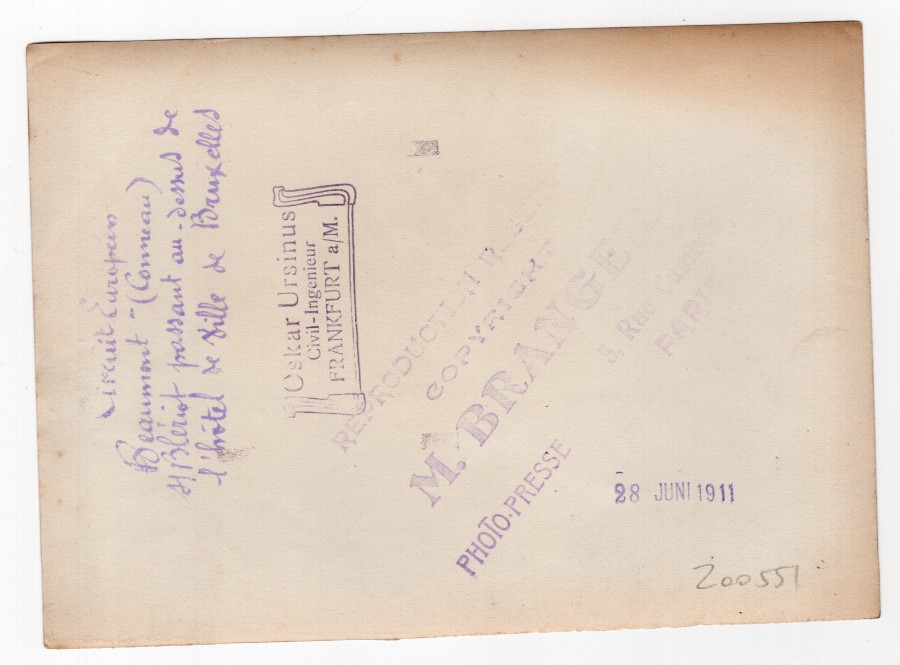 Circuit Européen
Beaumont "(Conneau)
s/ Blériot passant au-dessus de
l'hôtel de ville de Bruxelles
Oskar Ursinus
Civil-Ingenieur
FRANKFURT a/M.
REPRODUCTION
COPYRIGHT
M. BRANGER
5, Rue
PARIS
PHOTO-PRESSE
28 JUNI 1911
200551